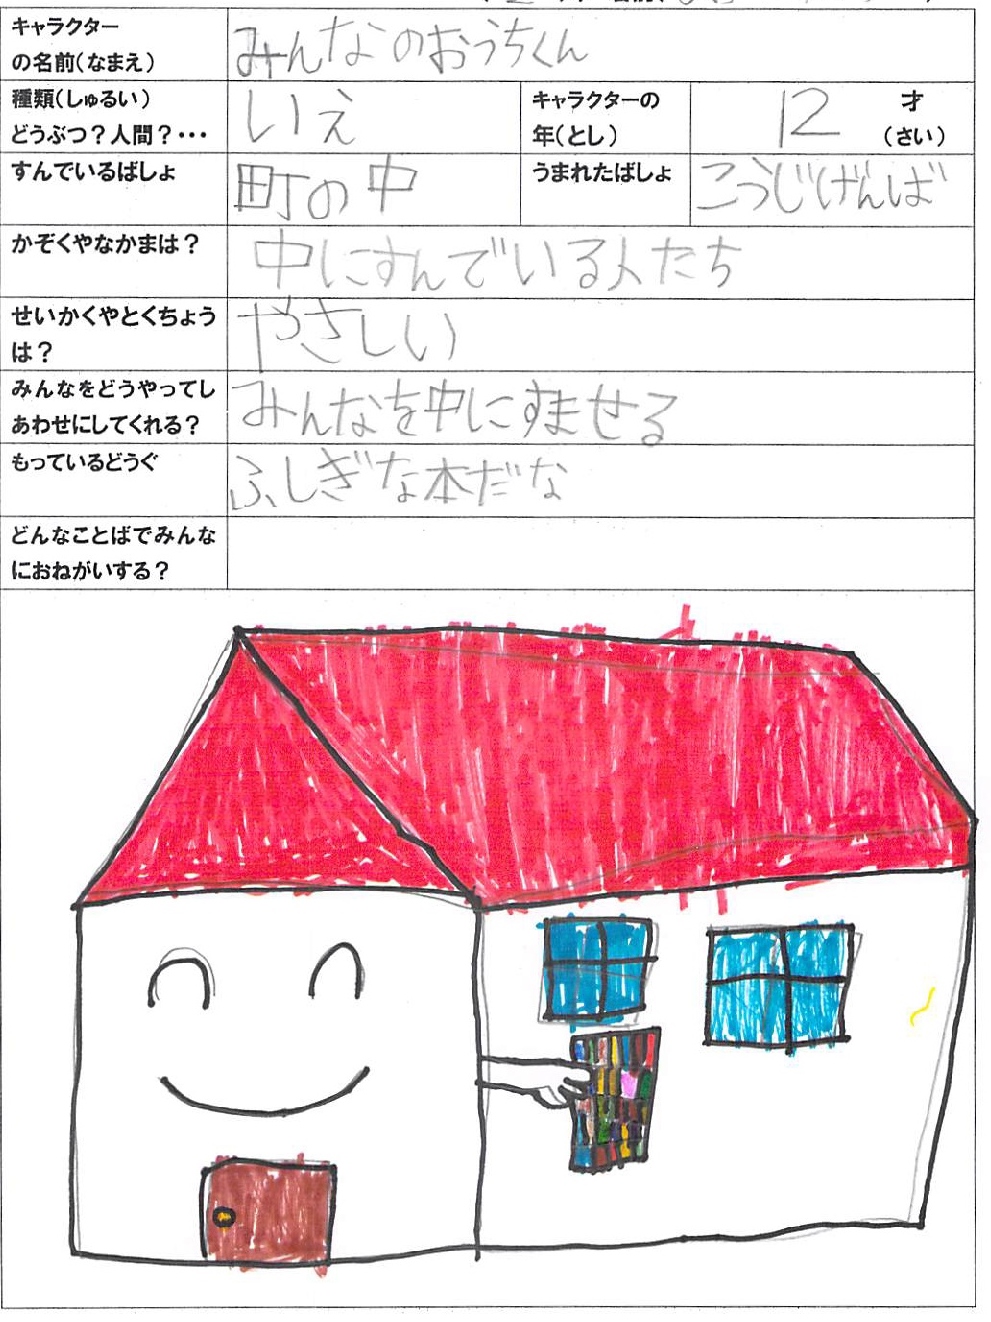 キャラクター
の名前(なまえ)
みんなのおうちくん
種類(しゅるい)
どうぶつ?人間?・・・
いえ
キャラクターの
年(とし)
12
才
(さい)
すんでいるばしょ
町の中
うまれたばしょ
こうじげんば
かぞくやなかまは?
中にすんでいる人たち
せいかくやとくちょう
は?
やさしい
みんなをどうやってし
あわせにしてくれる?
みんなを中にすませる
もっているどうぐ
ふしぎな本だな
どんなことばでみんな
におねがいする?